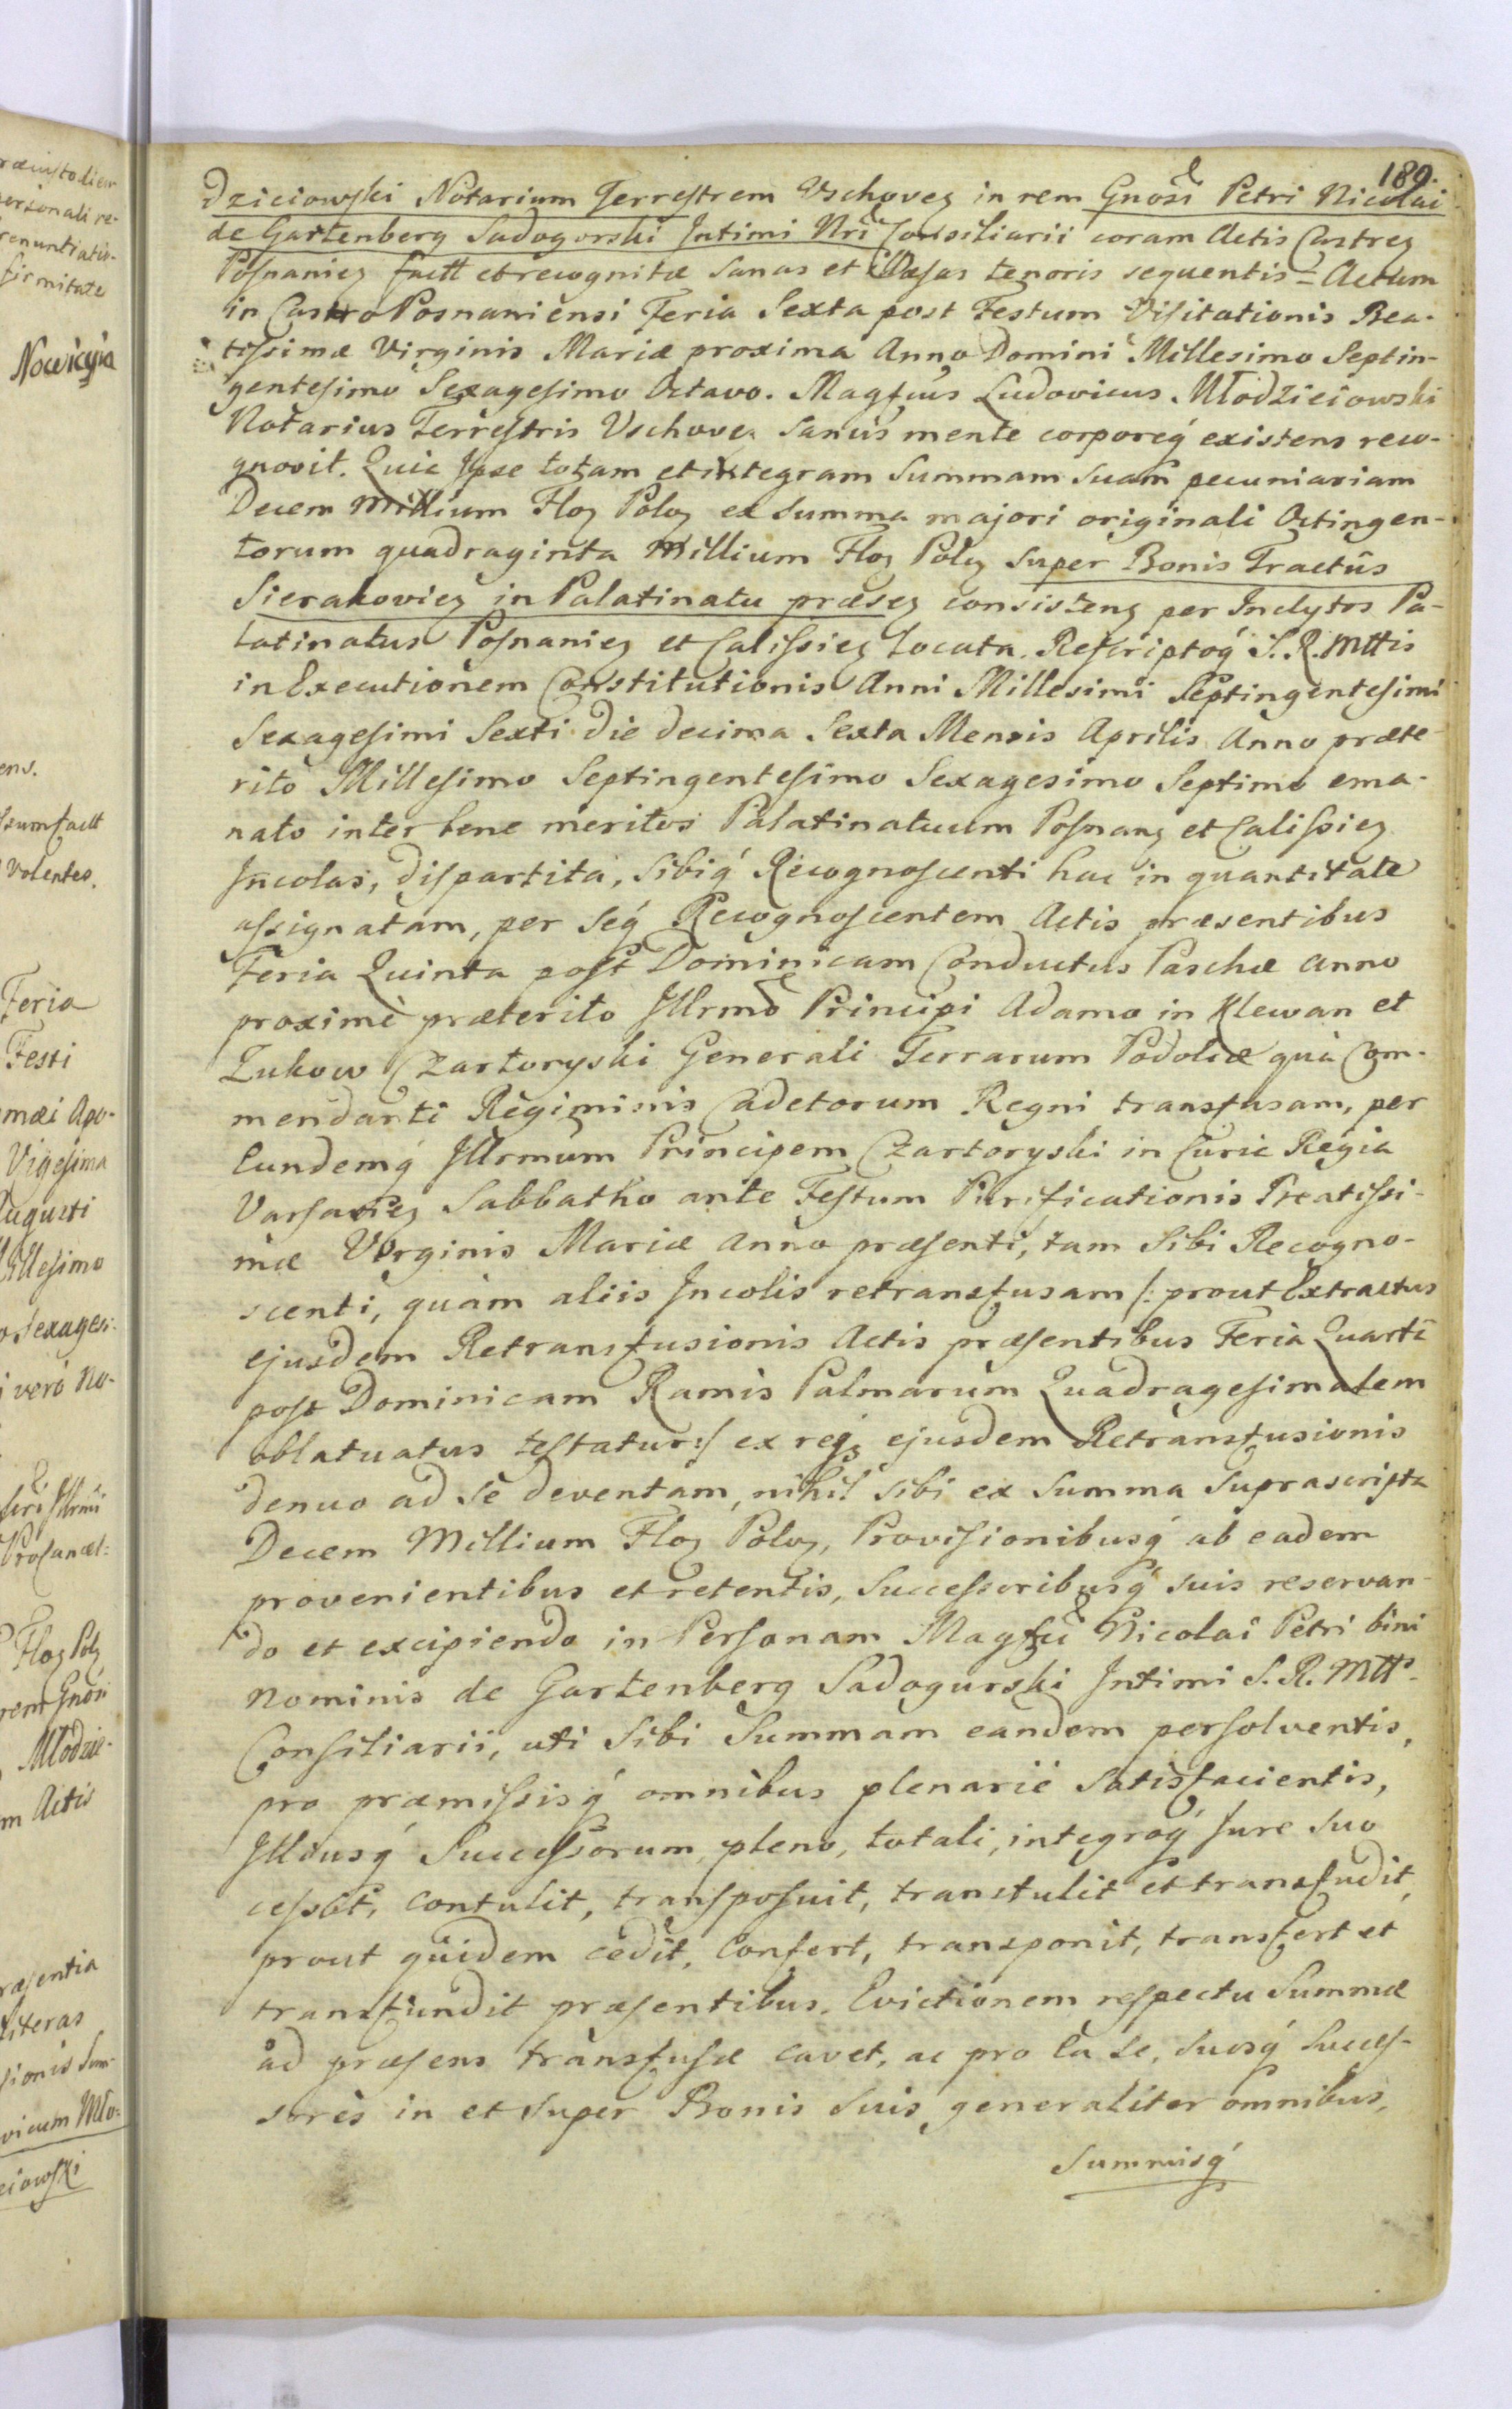 189.
dziciowski Notarium Terrestrem Vschovez in rem Gnosi Petri Nicolai
de Gartenberg Sadogorski Intimi Nri Consiliarii coram Actis Castrez
Posnaniez factt et recognitæ sanas et illæsas tenoris sequentis = Actum
in Castro Posnaniensi Feria Sexta post Festum Visitationis Bea-
tissimæ Virginis Mariæ proxima Anno Domini Millesimo Septin-
gentesimo Sexagesimo Octavo. Magfcus Ludovicus Młodzieiowski
Notarius Terrestris Vschovez sanus mente corporeq́ existens reco-
gnovit. Quia Ipse totam et integram Summam suam pecuniariam
Decem Millium Floz Poloz ex summa majori originali Octingen-
torum quadraginta Millium Floz Polz super Bonis Tractûs
Sierakoviez in Palatinatu præsez consistenz per Inclytos Pa-
latinatus Posnaniez et Calissiez locata. Rescriptoq́ S. R. Mttis
in Executionem Constitutionis Anni Millesimi Septingentesimi
Sexagesimi Sexti die decima Sexta Mensis Aprilis Anno præte-
rito Millesimo Septingentesimo Sexagesimo Septimo ema-
nato inter bene meritos Palatinatuum Posnanz et Calissiez
Incolas, dispartita, sibiq́ Recognoscenti hac in quantitate
assignatam, per seq́ Recognoscentem Actis præsentibus
Feria Quinta post Dominicam Conductus Paschæ anno
proximè præterito Illrmo Principi Adamo in Klewan et
Zukow Czartoryski Generali Terrarum Podoliæ quà Com-
mendanti Regiminis Cadetorum Regni transfusam, per
Eundemq́ Illrmum Principem Czartoryski in Curia Regia
Varsaviez Sabbatho ante Festum Purificationis Beatissi-
mæ Virginis Mariæ anno præsenti, tam sibi Recogno-
scenti, quàm aliis Incolis retransfusam /: prout Extractus
ejusdem Retransfusionis Actis præsentibus Feria Quarta
post Dominicam Ramis Palmarum Quadragesimalem
oblatuatus testatur :/ ex req́z ejusdem Retransfusionis
denuo ad se deventam, nihil sibi ex Summa suprascripta
Decem Millium Floz Poloz, Provisionibusq́ ab eadem
provenientibus et retentis, Successoribusq́ suis reservan-
do et excipiendo in Personam Magfci Nicolai Petri bini
Nominis de Gartenberg Sadogurski Intimi S. R. Mttis
Consiliarii, uti sibi Summam eandem persolventis,
pro præmissisq́ omnibus plenariè satisfacientis,
Illiusq́ Successorum, pleno, totali, integroq́ Jure suo
cessit, contulit, transposuit, transtulit et transfudit,
prout quidem cedit, Confert, transponit, transfert et
transfundit præsentibus. Evictionem respectu Summæ
ad præsens transfusæ cavet, ac pro Ea se, suosq́ Succes-
sores in et super Bonis suis generaliter omnibus,
Summisq́
ersonali re-
firmitate
Nowicyia
ens.
sum factt
Volentes.
Feria
Festi
mæi Apo-
Vigesima
Augusti
Millesimo
o Sexagesi-
i verò No-
Floz Polz
rem Gnosi
Młodzie-
m Actis
ræsentia
Literas
sionis Sum-
vicum Mło-
eiowski